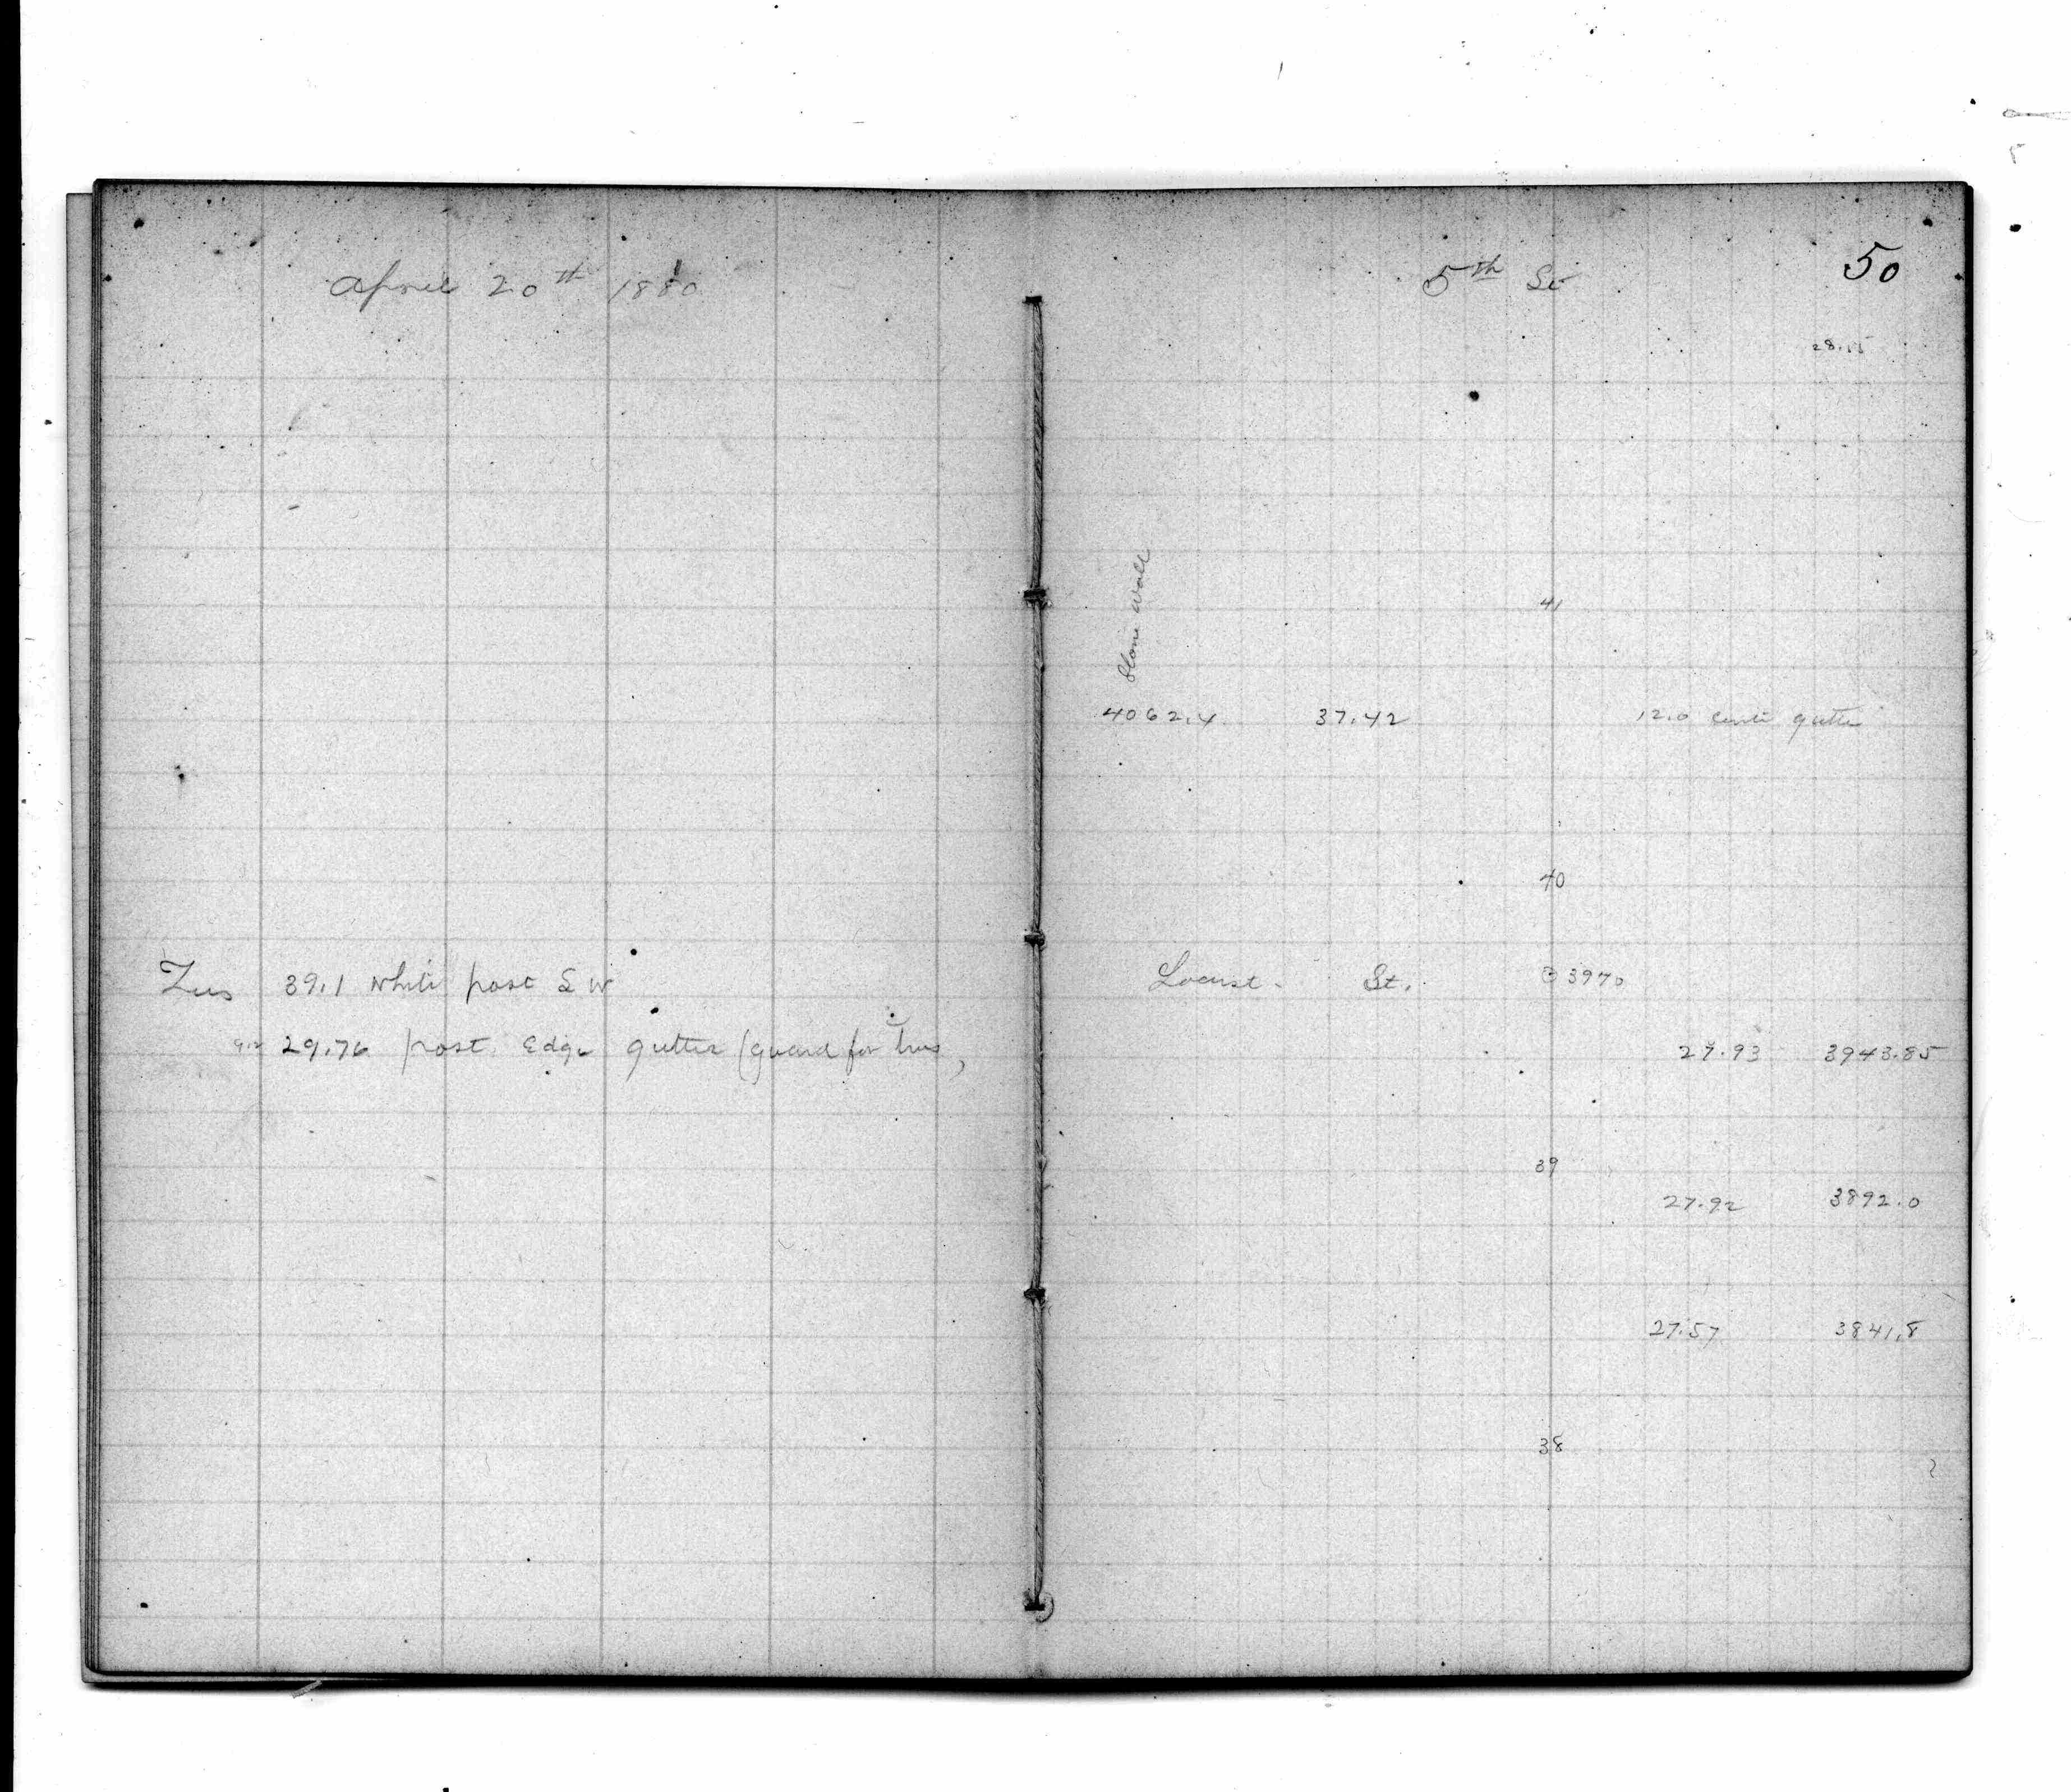 April 20th 1880
Ties 39.1 white post S W
29.76 post Edge gutter (guard for tree)
5th St
50
28.15
41
Stone wall
4062.4 37.42 12.0 center gutter
40
Locust St. 3970
27.93 3943.85
39
27.92 3892.0
27.57 3841.8
38